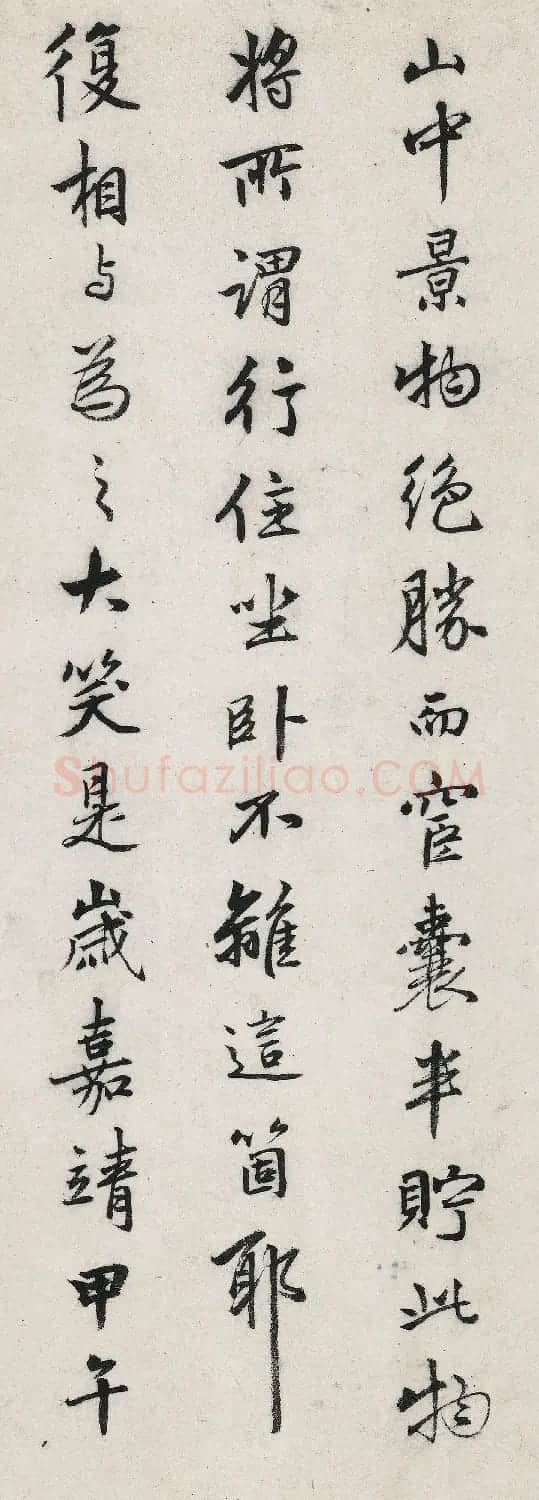 山中景物絶勝而宦囊半貯此物
將所謂行住坐卧不離這箇耶
復相与為之大笑是歲嘉靖甲午
Shufaziliao.COM